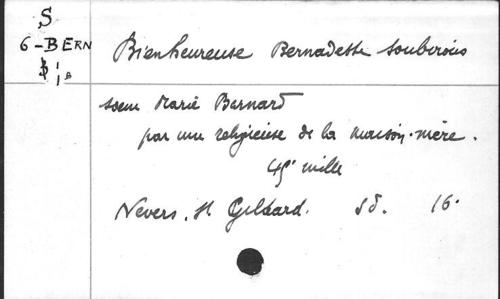 S
6-BERN
Bienheureuse Bernadette Soubirous
soeur Marie Bernard
par une religieuse de la maison-mère.
45e mille
Nevers. St Gildard. sd. 16.